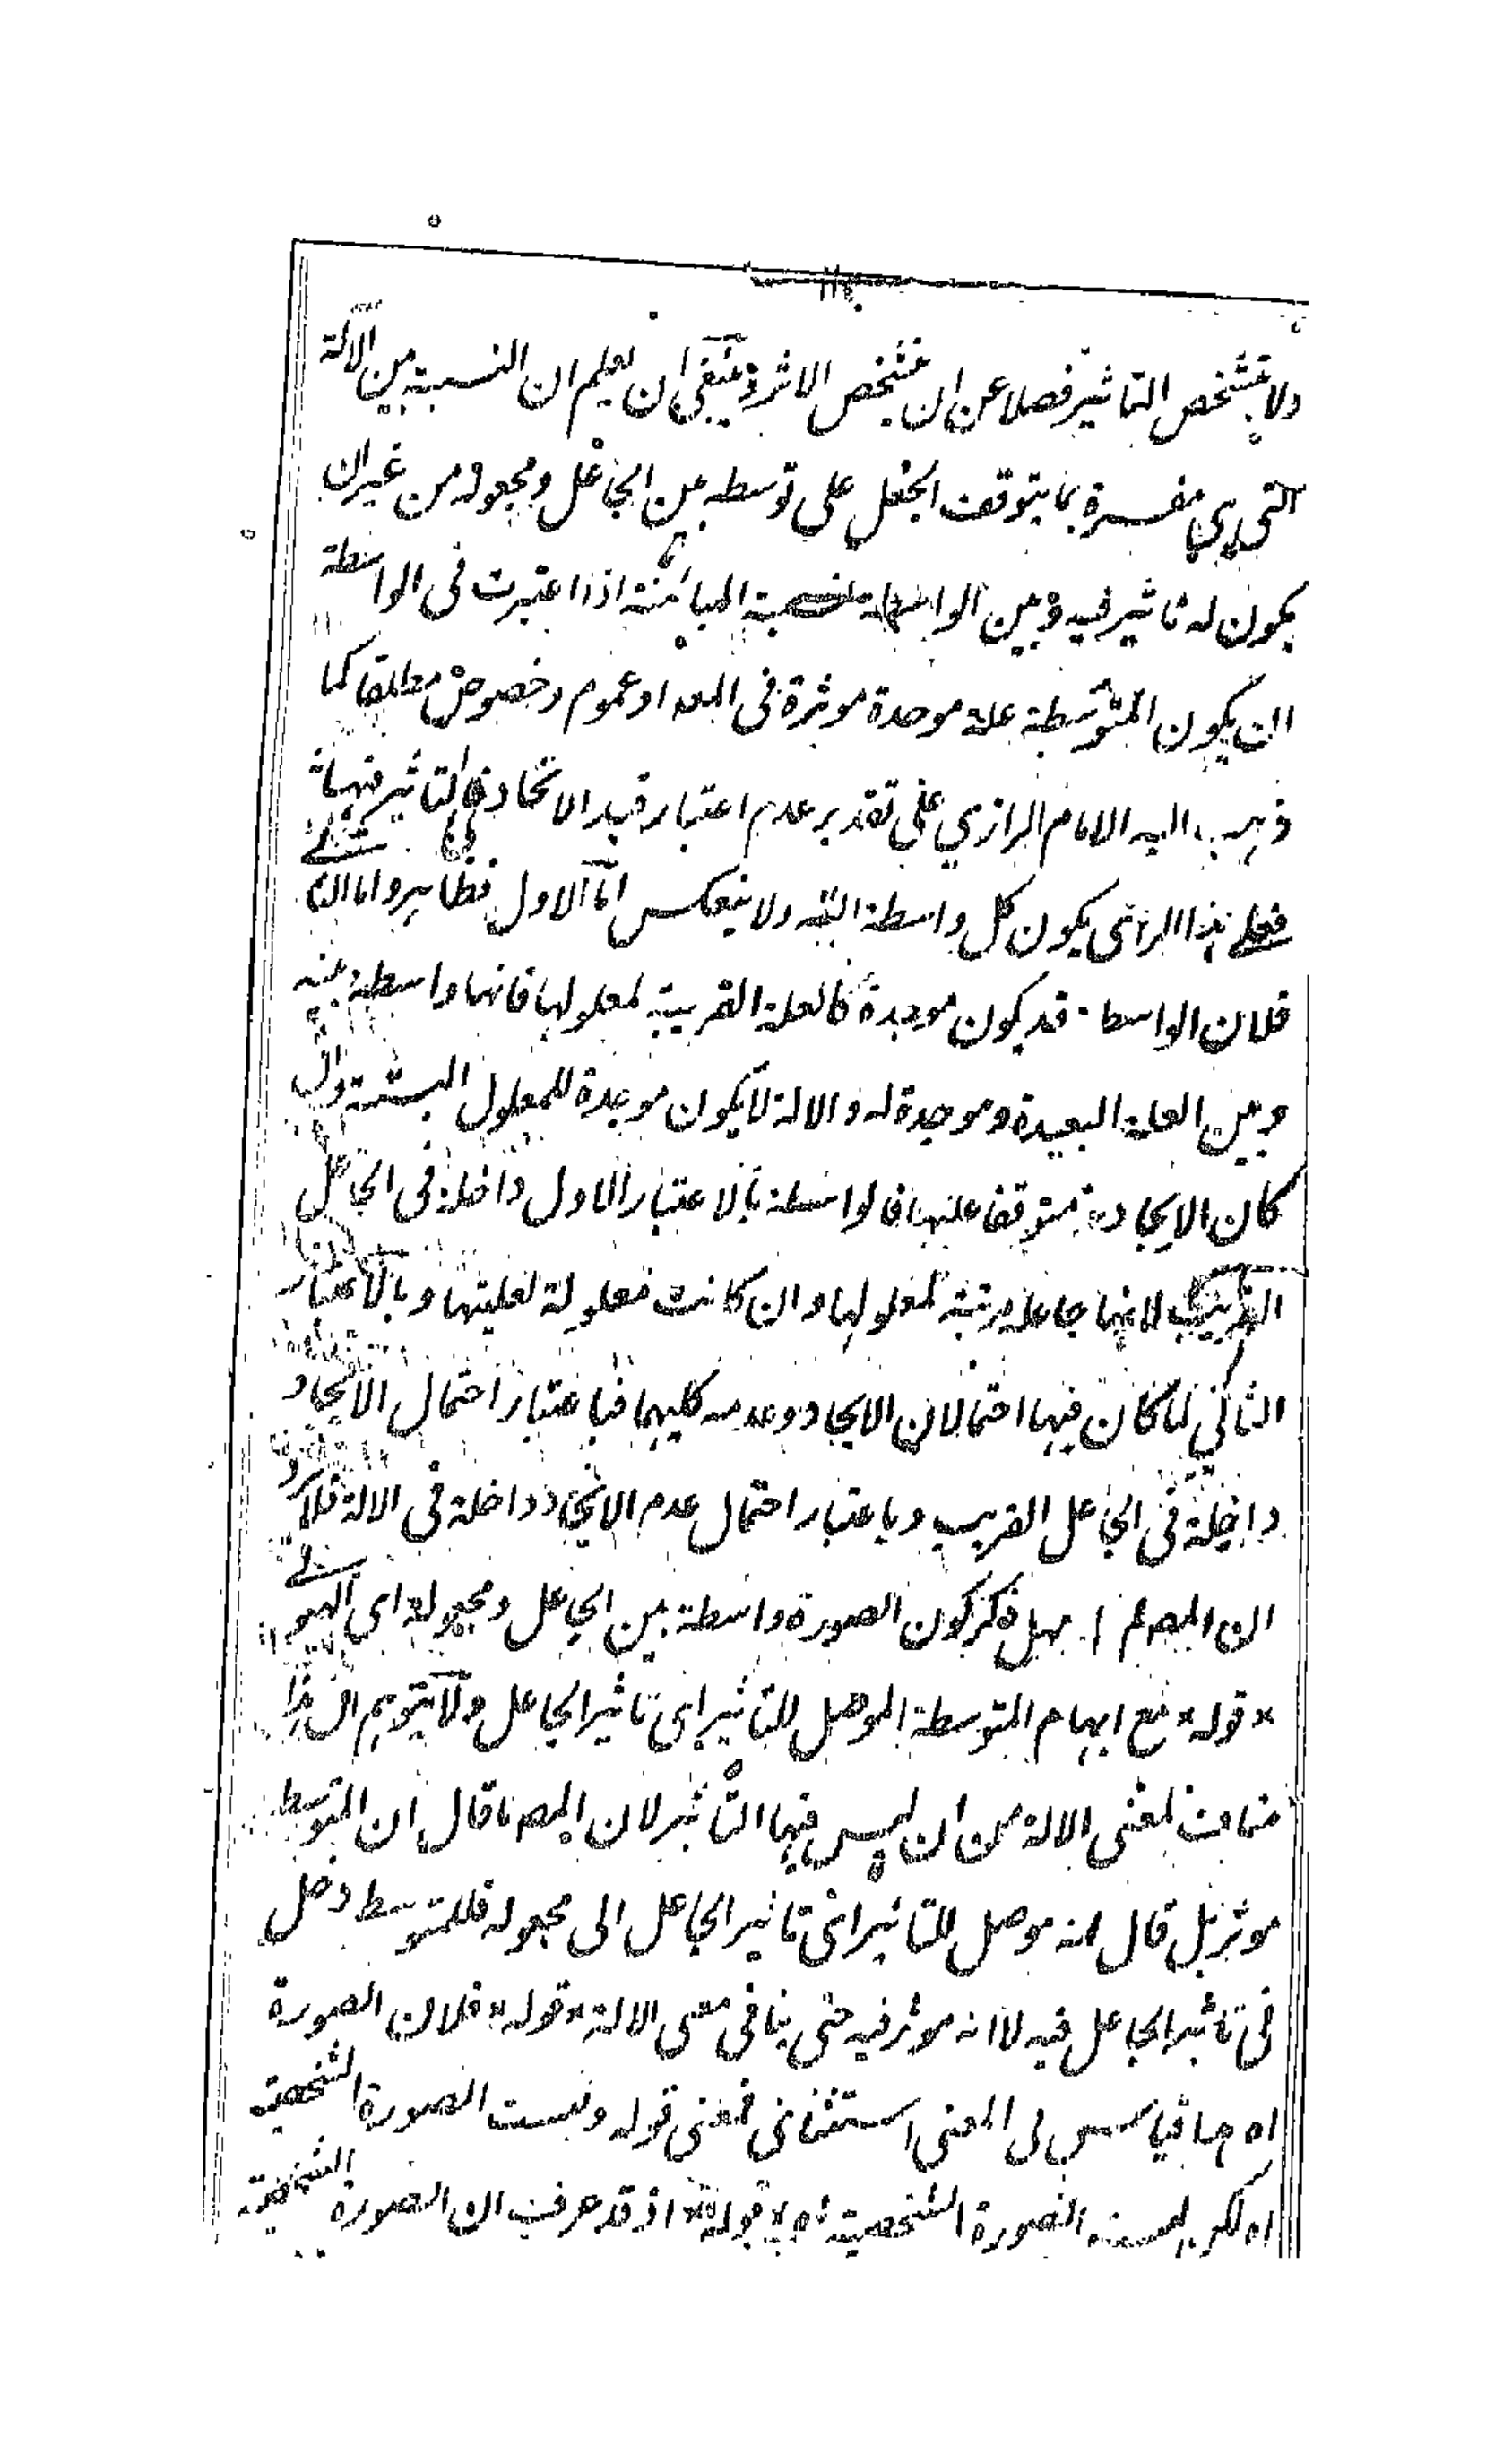 ولا يتشخص التاثير فضلا عن ان يتشخص الاثر وينبغي ان يعلم ان النسبة بين الآلة
التي هي مفسرة بما يتوقف الجعل على توسطه بين الجاعل ومجعوله من غير ان
يكون له تاثير فيه وبين الواسطة نسبة المباينة اذا اعتبرت في الواسطة
ان يكون المتوسطة علة موجدة موثرة في البعد او عموم وخصوص مطلقا كما
ذهب اليه الامام الرازي على تقدير عدم اعتبار قيد الايجاد والتاثير فيها
فعلى هذا الرأي يكون كل واسطة آلة ولا ينعكس اما الاول فظاهر واما الثاني
فلان الواسطة قد يكون موجدة كالعلة القريبة لمعلولها فانها واسطة بينه
وبين العلة البعيدة وموجدة له والالة لا يكون موجدة للمعلول البتة وان
كان الايجاد متوقفا عليها فالواسطة بالاعتبار الاول داخلة في الجاعل
القريب لانها جاعلة قريبة لمعلولها وان كانت معلولة لعليتها وبالاعتبار
الثاني لما كان فيها احتمالان الايجاد وعدمه كليهما فباعتبار احتمال الايجاد
داخلة في الجاعل القريب وباعتبار احتمال عدم الايجاد داخلة في الالة فلا يرد
ان المصنف اهمل ذكر كون الصورة واسطة بين الجاعل ومجعوله اي الهيولى
* قوله * مع ابهام المتوسطة الموصل للتاثير اي تاثير الجاعل ولا يتوهم ان هذا
مناف لمعنى الالة من ان ليس فيها التأثير لان المصـ ما قال ان المتوسط
موثر بل قال انه موصل للتاثير اي تاثير الجاعل الى مجعوله فللمتوسط دخل
في تاثير الجاعل فيه لا انه موثر فيه حتى ينافي معنى الالة * قوله * فلان الصورة
اه هذا قياس في المعنى استثنائي فمعنى قوله وليست الصورة الشخصية
اه لكن ليست الصورة الشخصية اه * قوله * اذ قد عرفت ان الصورة الشخصية